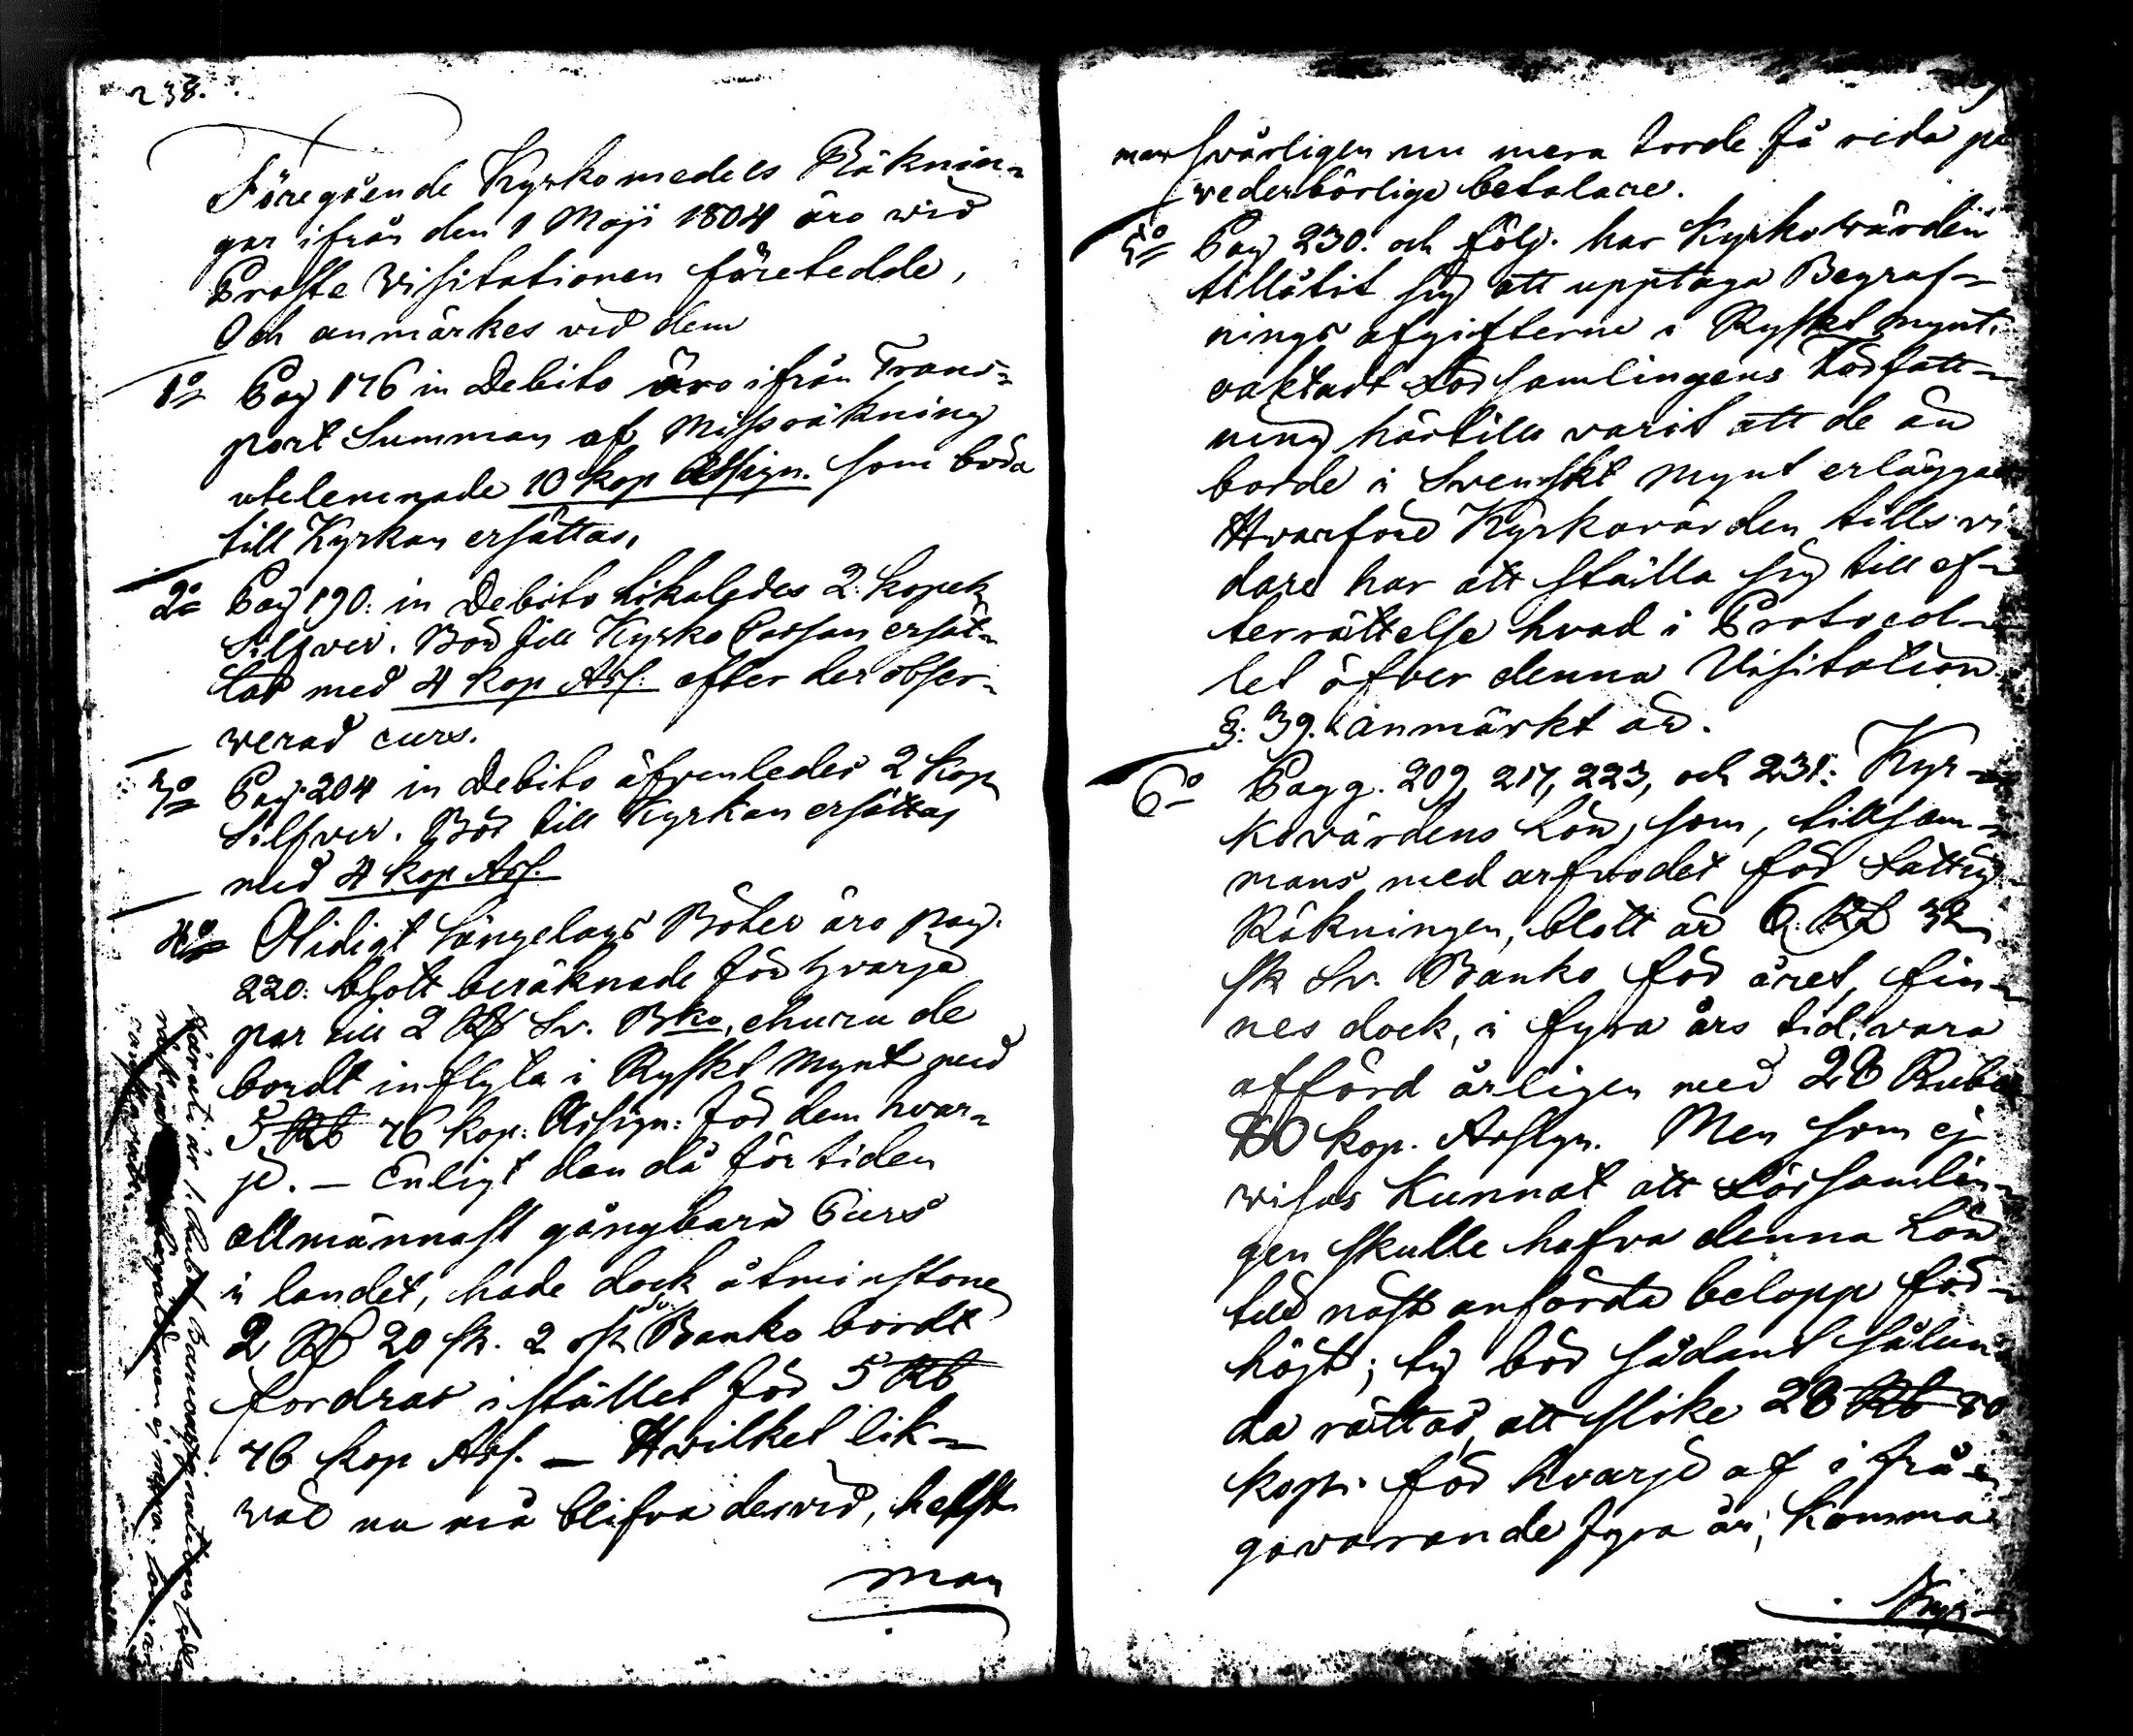 238.
Föregående Kyrkomedels Räknin-
gar ifrån den 1 Maji 1804 äro wid
Proste Visitationen företedde,
Och anmärkes vid dem
1o Pag 176 in Debito äro ifrån Trans-
port Summan af Missräkning
utelemnade 10 kop Assign. som böra
till Kyrkan ersättas.
2o Pag 190. in Debito likaledes 2. kopek
Silfver. Bör till Kyrko Cassan ersät-
tas med 4 kop Ass. efter der obser-
verad curs.
3o Pag. 204 in Debito äfvenledes 2 kop
Silfver. Bör till Kyrkan ersättas
med 4 kop Ass.
4o Otidigt Sängelags Böter äro pag.
220. blott beräknade för hvarje
par till 2 Rd Sv. Bko, ehuru de
bordt inflyta i Ryskt Mynt med
5 Rb 76 kop. Assign. för dem hvar-
je. — Enligt den då för tiden
allmännast gångbara Curs
i landet, hade dock åtminstone
2 Rd 20 sk. 2 rst Sv. Banko bordt
fordras i stället för 5 Rb
76 kop Ass. — Hvilket lik-
wäl nu må blifva dervid, helst
man
man svårligen nu mera torde få reda på
vederbörlige betalare.
5o Pag 230. och följ. har Kyrkovärden
tillåtit sig att upptaga Begraf-
nings afgifterne i Ryskt mynt,
oaktadt Församlingens Författ-
ning härtills varit att de än
borde i Svenskt Mynt erläggas
Hvarföre Kyrkovärden tills vi-
dare har att ställa sig till ef-
terrättelse hvad i Protocol-
let öfver denna Visitation
§. 39. anmärkt är.
6o Pagg. 209, 217, 223, och 231. Kyr-
kovärdens Lön, som, tillsam-
mans med arfvodet för Fattig-
Räkningen, blott är 6 Rd 32
sk Sv. Banko för året, fin-
nes dock, i fyra års tid, vara
afförd årligen med 28 Rub
80 kop. Assign. Men som ej
visas kunnat att Församlin-
gen skulle hafva denna Lön
till näst anförda belopp för-
höjt; ty bör sådant sålun-
da rättas, att slike 28 Rb 80
kop. för hvarje af i frå-
gavarande fyra år, komma
Kyr-